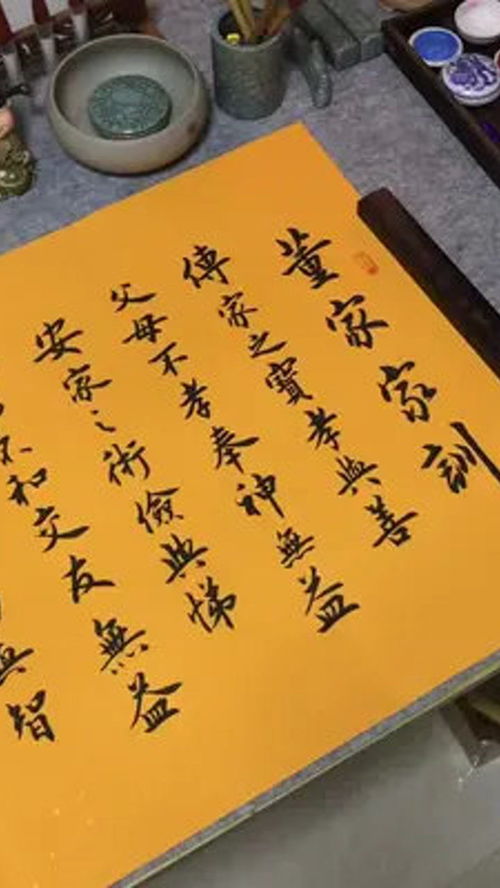 董家家訓
傳家之寶孝與善
父母不孝奉神無益
安家之術儉與悌
不和交友無益
與智